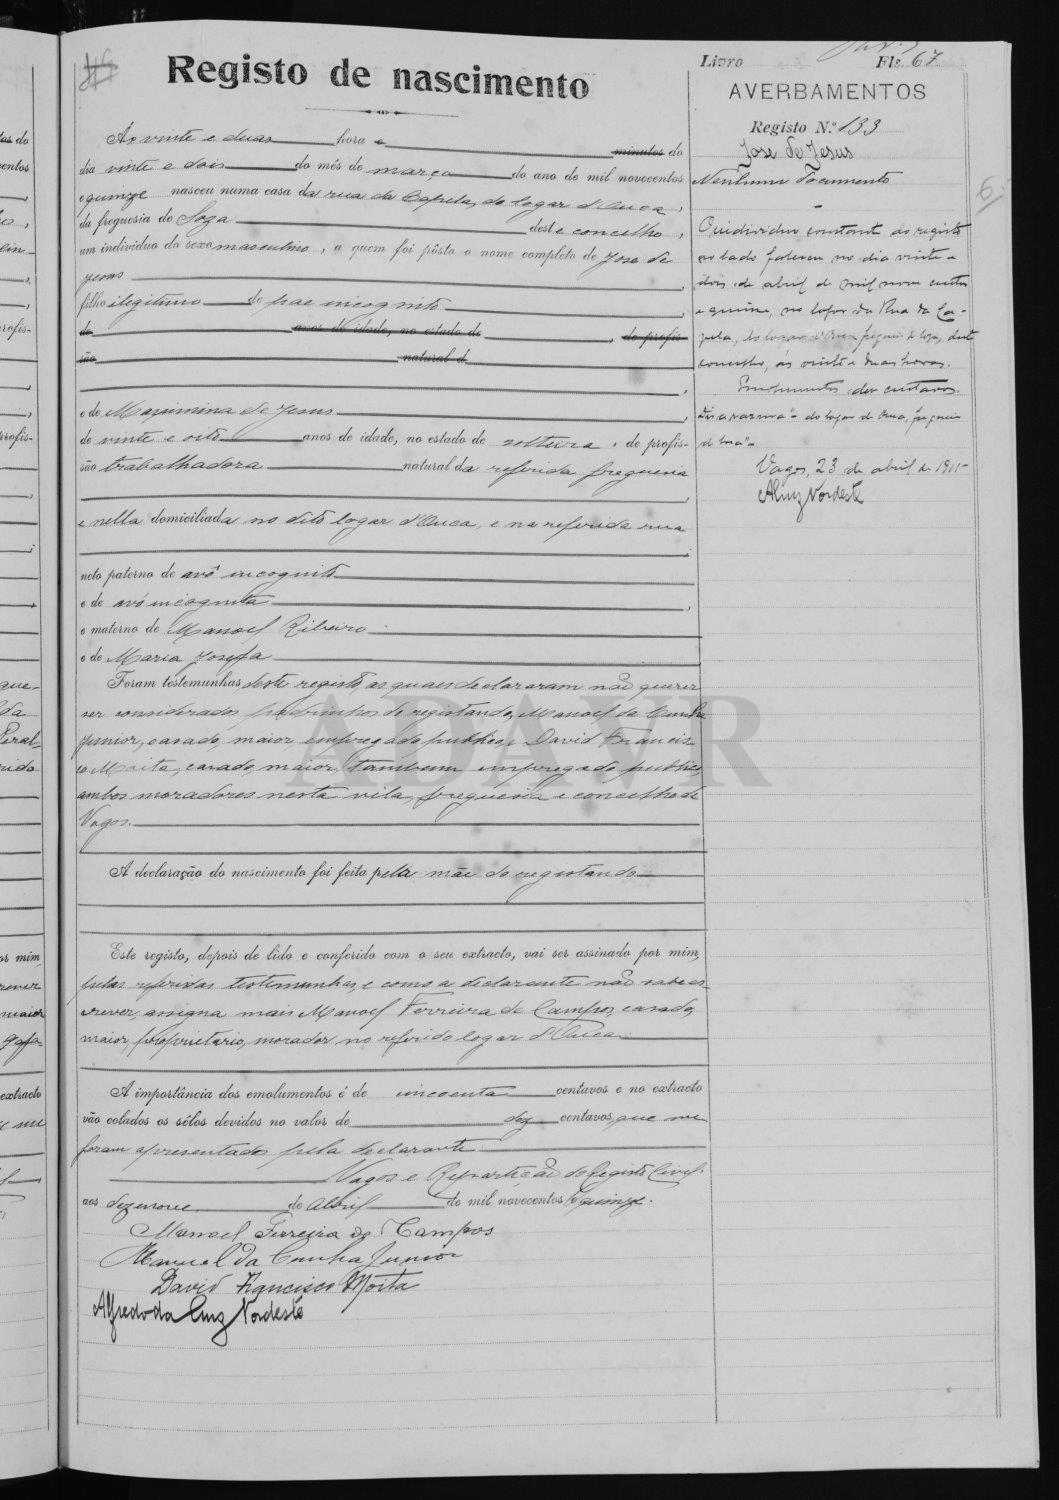 Registo de nascimento
Às vinte e duas hora e minutos do
dia vinte e dois do mês de março do ano de mil novecentos
e quinze nasceu numa casa da rua da Capela, do logar d'Ouca,
da freguesia de Soza deste concelho,
um individuo do sexo masculino, a quem foi pôsto o nome completo de Jose de
Jesus
filho ilegitimo de pae incognito
de anos de idade, no estado de , de profis-
são natural d
e de Maximina de Jesus
de vinte e oito anos de idade, no estado de solteira, de profis-
são trabalhadora natural da referida freguesia
e nella domiciliada no dito logar d'Ouca, e na referida rua
neto paterno de avô incognito
e de avó incognita
e materno de Manoel Ribeiro
e de Maria Josefa
Foram testemunhas deste registo, as quaes declararam não querer
ser considerados padrinhos do registando, Manoel da Cunha
Junior, casado, maior, empregado publico, David Francis-
co Moita, casado, maior, tambem empregado publico,
ambos moradores nesta vila, freguesia e concelho de
Vagos.
A declaração do nascimento foi feita pela mãe do registando
Este registo, depois de lido e conferido com o seu extracto, vai ser assinado por mim,
pelas referidas testemunhas, e como a declarante não sabe es-
crever, assigna mais Manoel Ferreira de Campos, casado,
maior, proprietario, morador no referido logar d'Ouca.
A importância dos emolumentos é de cincoenta centavos e no extracto
vão colados os sêlos devidos no valor de dez centavos, que me
foram apresentados pela declarante.
Vagos e Repartição do Registo Civil
aos dezenove de Abril de mil novecentos e quinze.
Manoel Ferreira de Campos
Manuel da Cunha Junior
David Francisco Moita
Alfredo da Cruz Nordeste
Livro Fls. 67
AVERBAMENTOS
Registo N.º 133
Jose de Jesus
Nenhum documento
O individuo constante do registo
ao lado faleceu no dia vinte e
dois de abril de mil nove centos
e quinze, no logar da Rua da Ca-
pela, do logar d'Ouca, freguesia de Soza, deste
concelho, ás vinte e duas horas.
Emolumentos dez centavos.
do logar de Ouca, freguesia
Vagos, 23 de abril de 1915
A Cruz Nordeste
ADAVR